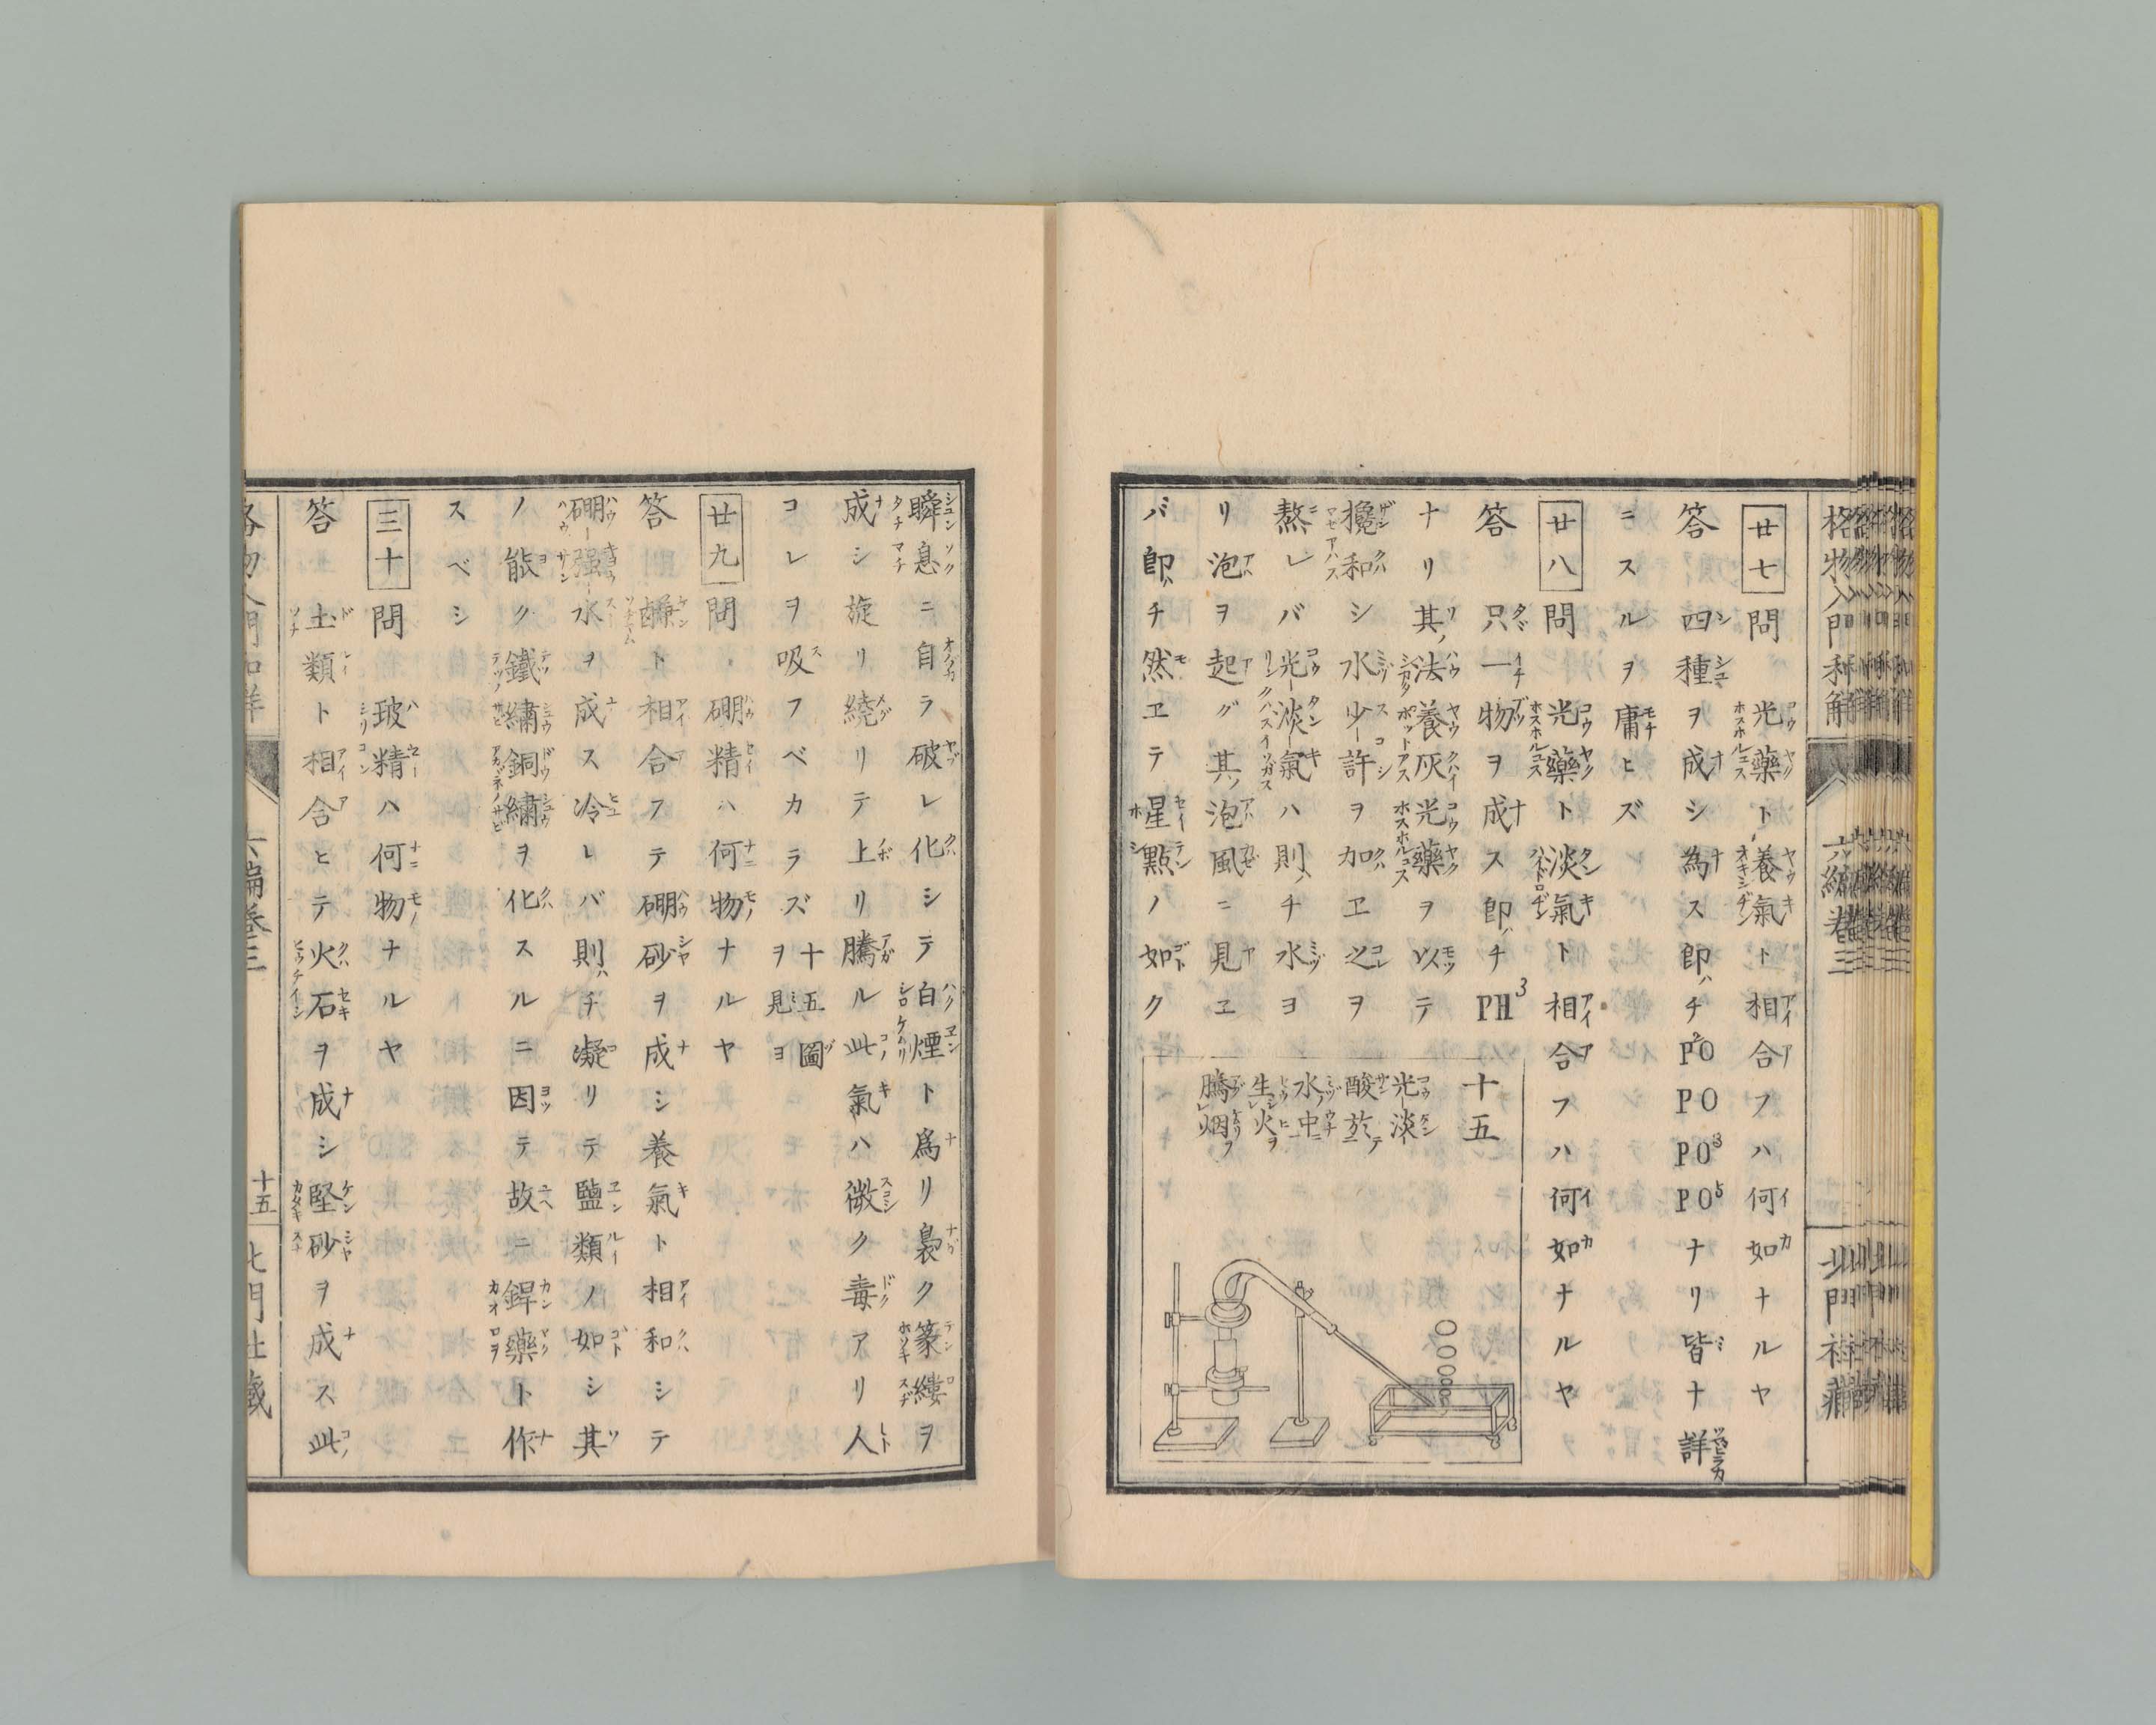 格物入門和解
六編卷三
北門社藏
廿七 問 光藥ト養氣ト相合フハ何如ナルヤ
答 四種ヲ成シ為ス即チP²O PO PO³ PO⁵ナリ皆ナ詳
ニスルヲ庸ヒズ
廿八 問 光藥ト淡氣ト相合フハ何如ナルヤ
答 只一物ヲ成ス即チPH³
ナリ其法養灰光藥ヲ以テ
攙和シ水少許ヲ加ヱ之ヲ
熬レバ光淡氣ハ則チ水ヨ
リ泡ヲ起グ其泡風ニ見ヱ
バ即チ然ヱテ星點ノ如ク
十五
光淡
酸於
水中
生火
騰烟
瞬息ニ自ラ破レ化シテ白煙ト爲リ裊ク篆縷ヲ
成シ旋リ繞リテ上リ騰ル此氣ハ微ク毒アリ人
コレヲ吸フベカラズ十五圖ヲ見ヨ
廿九 問 硼精ハ何物ナルヤ
答 鹻ト相合フテ硼砂ヲ成シ養氣ト相和シテ
硼强水ヲ成ス冷レバ則チ凝リテ鹽類ノ如シ其
ノ能ク鐵繡銅繡ヲ化スルニ因テ故ニ銲藥ト作
スベシ
三十 問 玻精ハ何物ナルヤ
答 土類ト相合ヒテ火石ヲ成シ堅砂ヲ成ス此
格物入門和解
六編卷三
十五
北門社藏